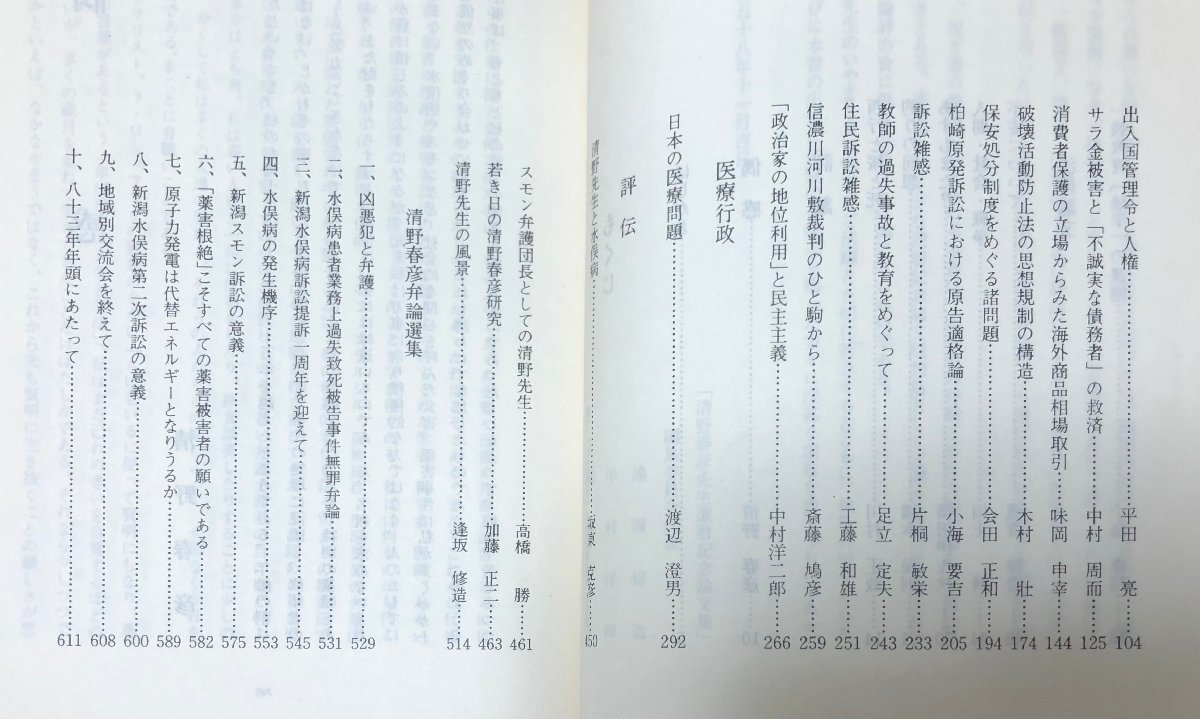 出入国管理令と人権……平田 亮……104
サラ金被害と「不誠実な債務者」の救済……中村 周而……125
消費者保護の立場からみた海外商品相場取引……味岡 申宰……144
破壊活動防止法の思想規制の構造……木村 壯……174
保安処分制度をめぐる諸問題……会田 正和……194
柏崎原発訴訟における原告適格論……小海 要吉……205
訴訟雑感……片桐 敏栄……233
教師の過失事故と教育をめぐって……足立 定夫……243
住民訴訟雑感……工藤 和雄……251
信濃川河川敷裁判のひと駒から……斎藤 鳩彦……259
「政治家の地位利用」と民主主義……中村洋二郎……266
医療行政
日本の医療問題……渡辺 澄男……292
評伝
清野先生と水俣病……坂東 克彦……453
スモン弁護団長としての清野先生……高橋 勝……461
若き日の清野春彦研究……加藤 正二……463
清野先生の風景……逢坂 修造……514
清野春彦弁論選集
一、凶悪犯と弁護……529
二、水俣病患者業務上過失致死被告事件無罪弁論……531
三、新潟水俣病訴訟提訴一周年を迎えて……545
四、水俣病の発生機序……553
五、新潟スモン訴訟の意義……575
六、「薬害根絶」こそすべての薬害被害者の願いである……582
七、原子力発電は代替エネルギーとなりうるか……589
八、新潟水俣病第二次訴訟の意義……600
九、地域別交流会を終えて……608
十、八十三年年頭にあたって……611